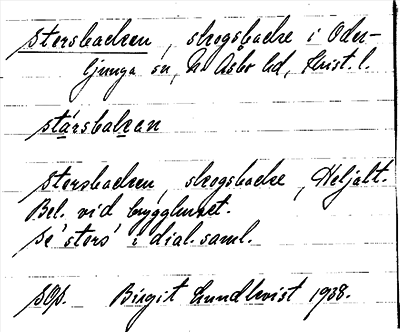 storsbacken, skogsbacke i Oder-
ljunga sn, N. Åsbo hd, Krist. l.
stársbakan
storsbacken, skogsbacke, Heljalt.
Bel. vid brygghuset.
Se 'stors' i dial. saml.
sop. Birgit Lundkvist 1938.